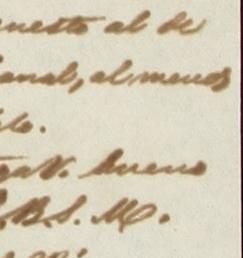 uesto al de
anal, al menos
lo.
V. bueno
B. S. M.